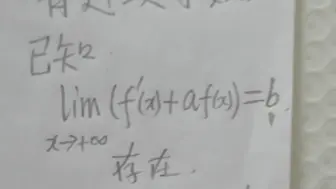 已知
lim (f'(x)+af(x))=b
x→+∞
存在.